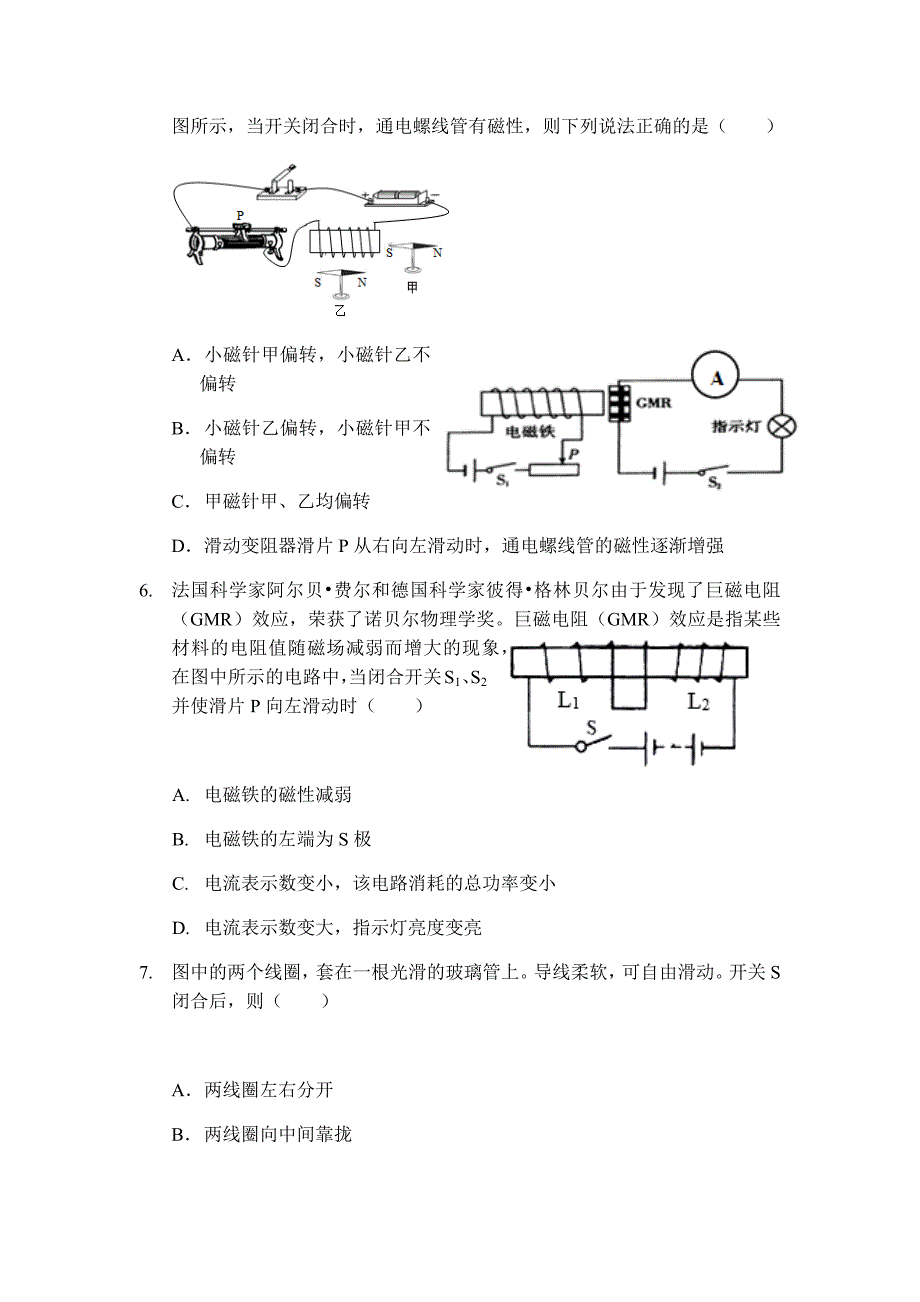 图所示，当开关闭合时，通电螺线管有磁性，则下列说法正确的是（　　）
P
+
−
S
N
甲
S
N
乙
A．小磁针甲偏转，小磁针乙不
偏转
B．小磁针乙偏转，小磁针甲不
偏转
C．甲磁针甲、乙均偏转
电磁铁
P
S₁
GMR
A
指示灯
S₂
D．滑动变阻器滑片 P 从右向左滑动时，通电螺线管的磁性逐渐增强
6. 法国科学家阿尔贝•费尔和德国科学家彼得•格林贝尔由于发现了巨磁电阻
（GMR）效应，荣获了诺贝尔物理学奖。巨磁电阻（GMR）效应是指某些
材料的电阻值随磁场减弱而增大的现象，
在图中所示的电路中，当闭合开关 S₁、S₂
并使滑片 P 向左滑动时（　　）
L₁
L₂
S
A. 电磁铁的磁性减弱
B. 电磁铁的左端为 S 极
C. 电流表示数变小，该电路消耗的总功率变小
D. 电流表示数变大，指示灯亮度变亮
7. 图中的两个线圈，套在一根光滑的玻璃管上。导线柔软，可自由滑动。开关 S
闭合后，则（　　）
A．两线圈左右分开
B．两线圈向中间靠拢